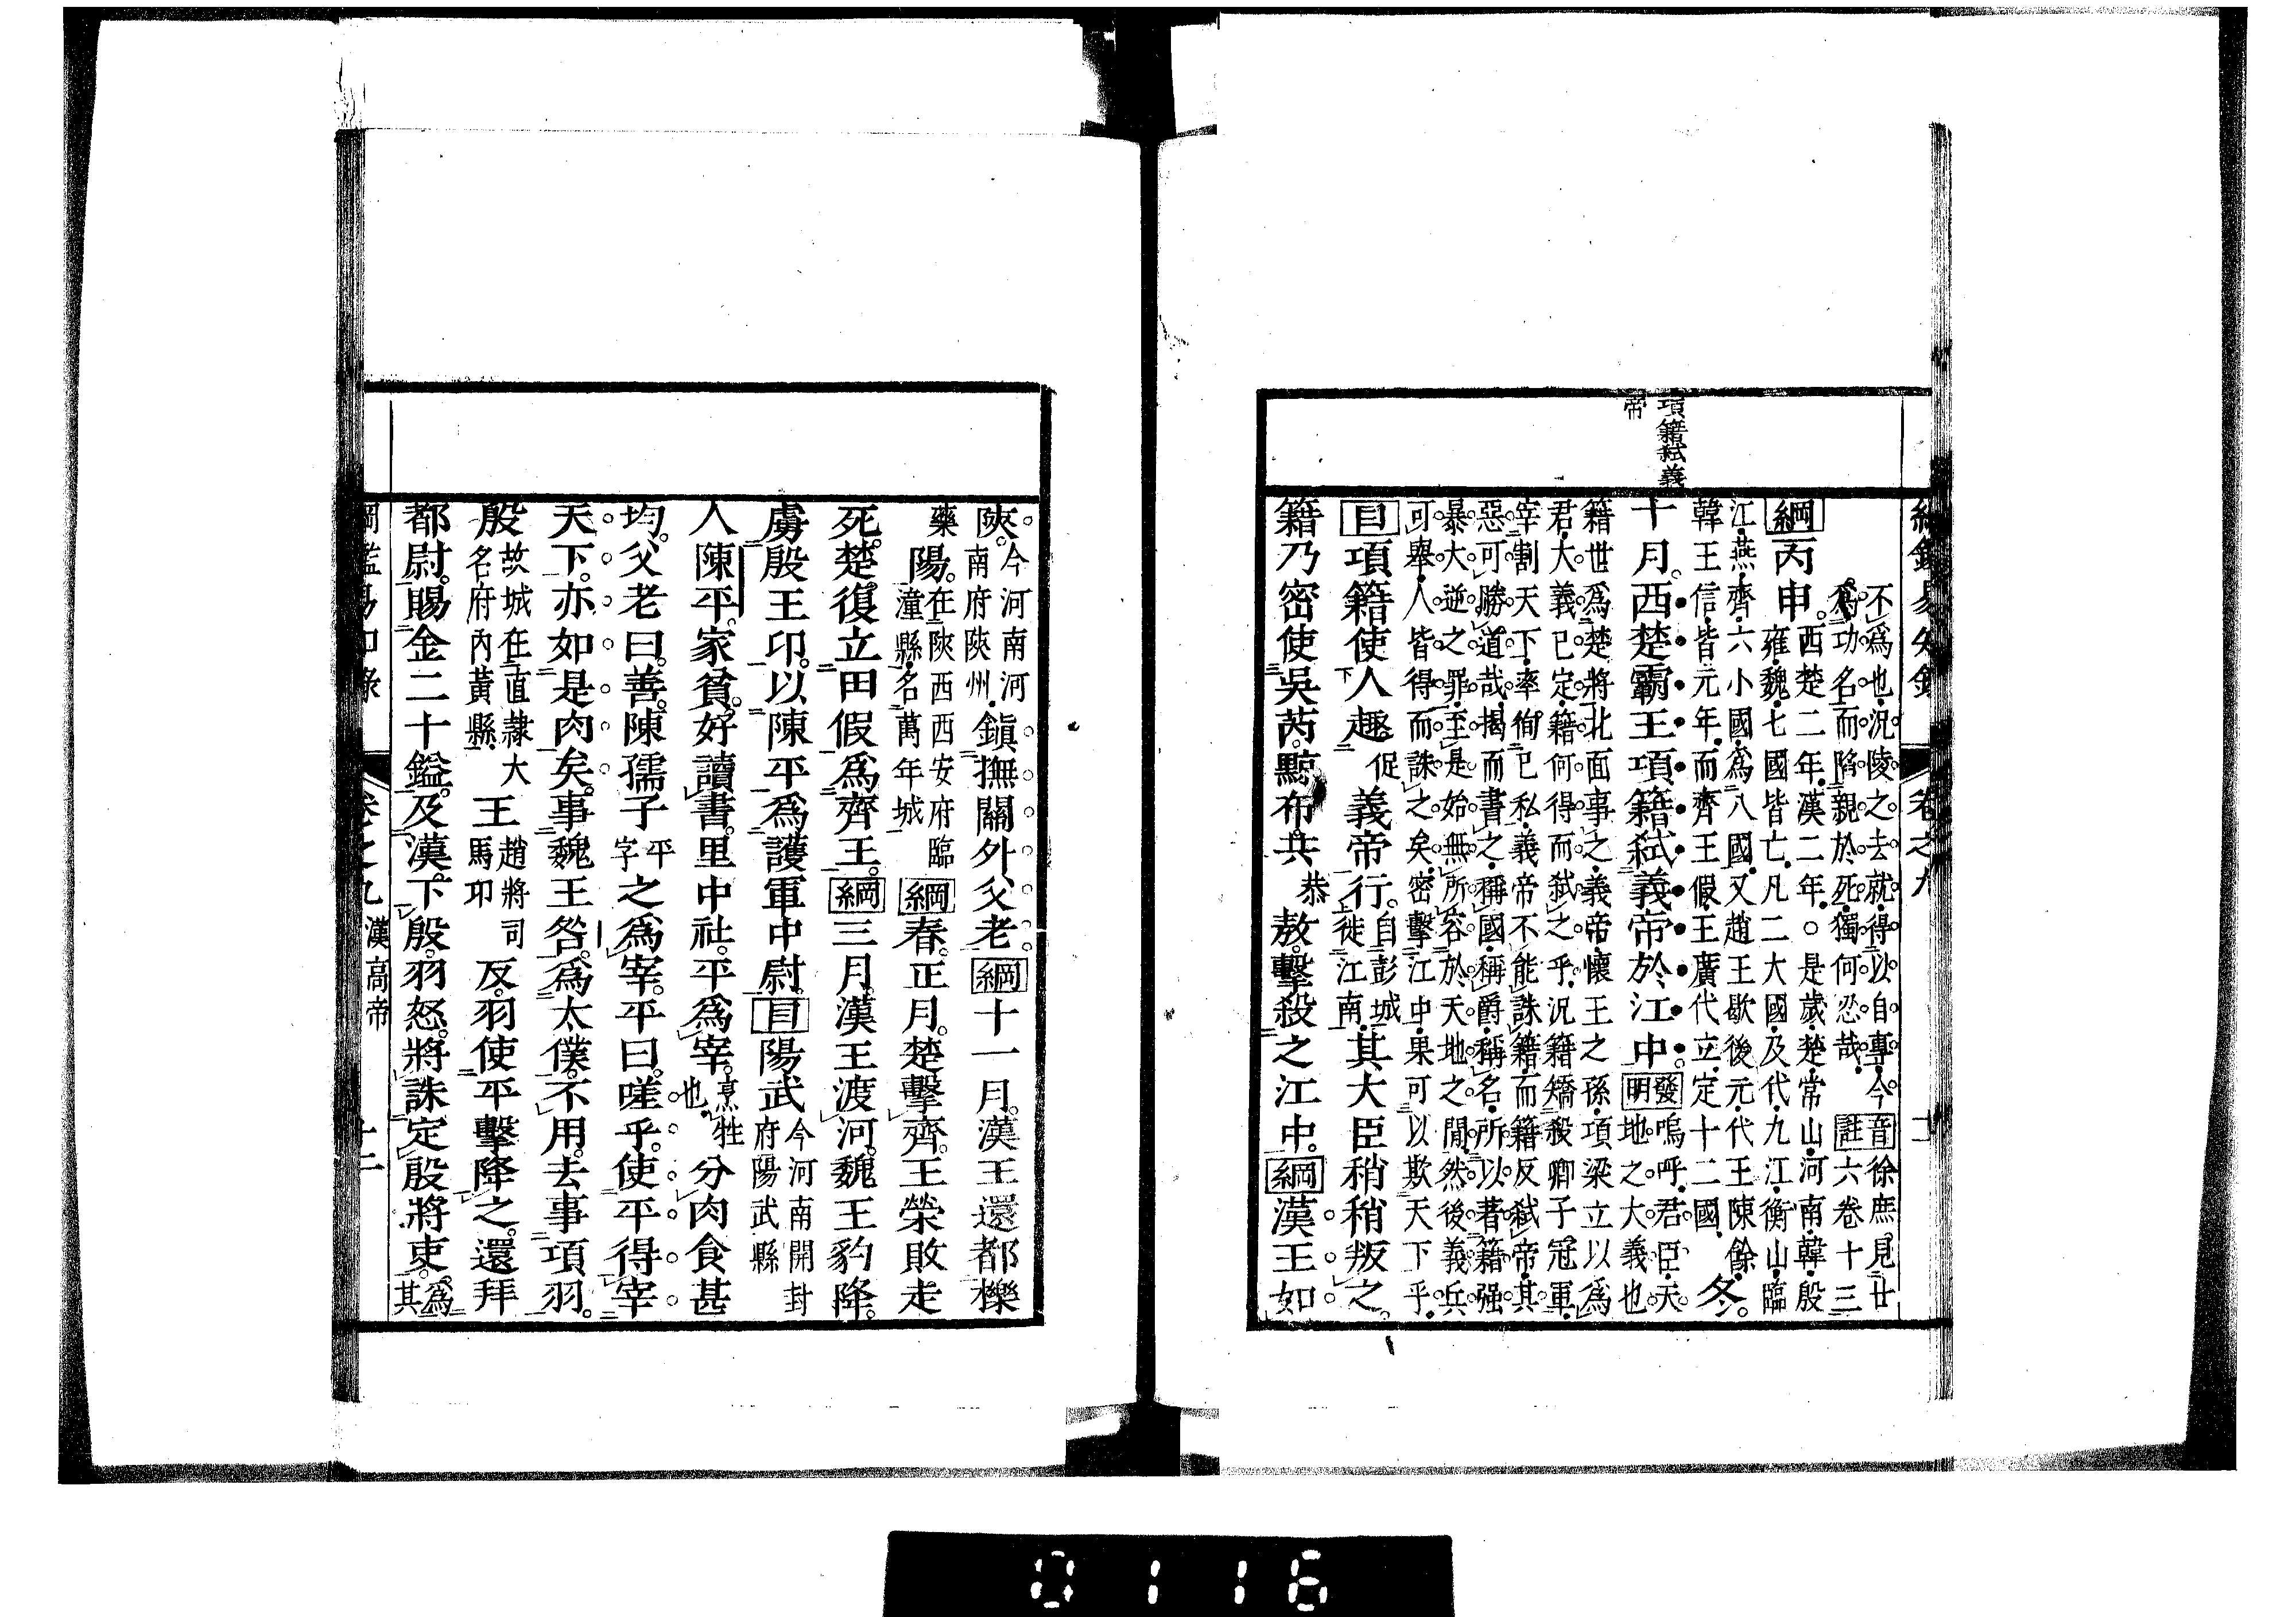 項籍弑義
帝
不爲也況陵之去就得以自專今
爲功名而陷親於死獨何忍哉
音註
徐庶見廿
六卷十三
綱丙申
西楚二年漢二年○是歲楚常山河南韓殷
雍魏七國皆亡凡二大國及代九江衡山臨
江燕齊六小國爲八國又趙王歇後元代王陳餘
韓王信皆元年而齊王假王廣代立定十二國
冬
十月西楚霸王項籍弑義帝於江中
發明
嗚呼君臣天
地之大義也
籍世爲楚將北面事之義帝懷王之孫項梁立以爲
君大義已定籍何得而弑之乎況籍矯殺卿子冠軍
宰割天下率徇已私義帝不能誅籍而籍反弑帝其
惡可勝道哉揭而書之稱國稱爵稱名所以著籍强
暴大逆之罪至是始無所容於天地之閒然後義兵
可舉人皆得而誅之矣密擊江中果可以欺天下乎
目項籍使人趣
促
義帝行
自彭城
徙江南
其大臣稍稍叛之
籍乃密使吳芮黥布共
恭
敖擊殺之江中綱漢王如
陝
今河南河
南府陝州
鎭撫關外父老綱十一月漢王還都櫟
藥
陽
在陝西西安府臨
潼縣名萬年城
綱春正月楚擊齊王榮敗走
死楚復立田假爲齊王綱三月漢王渡河魏王豹降
虜殷王印以陳平爲護軍中尉目陽武
今河南開封
府陽武縣
人陳平家貧好讀書里中社平爲宰
烹牲
也
分肉食甚
均父老曰善陳孺子
平
字
之爲宰平曰嗟乎使平得宰
天下亦如是肉矣事魏王咎爲太僕不用去事項羽
殷
故城在直隷大
名府內黃縣
王
趙將司
馬卬
反羽使平擊降之還拜
都尉賜金二十鎰及漢下殷羽怒將誅定殷將吏
爲
其
綱鑑易知錄 卷之九 漢高帝 十二